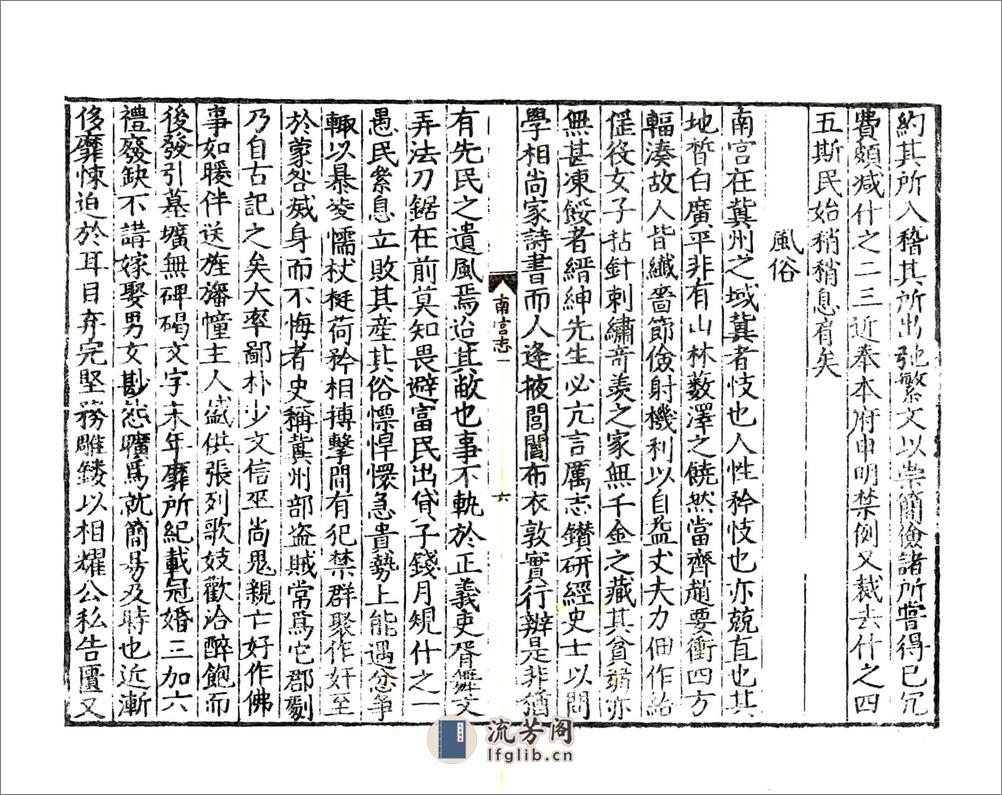 約其所入稽其所出弛繁文以崇簡儉諸所嘗得已冗
費頗减什之二三近奉本府申明禁例又裁去什之四
五斯民始稍稍息肩矣
風俗
南宫在冀州之域冀者忮也人性矜忮也亦兢直也其
地晳白廣平非有山林藪澤之饒然當齊趙要衝四方
輻湊故人皆纖嗇節儉射機利以自益丈夫力佃作給
徭役女子拈針刺繡竒羡之家無千金之藏其貧窮亦
無甚凍餒者縉紳先生必亢言厲志鑚研經史士以問
學相尚家詩書而人逢掖閭閻布衣敦實行辨是非猶
南宫志一
六
有先民之遺風焉迨其敝也事不軌於正義吏胥舞文
弄法刀鋸在前莫知畏避富民出貸子錢月規什之一
愚民絫息立敗其産其俗慓悍懷急貴勢上能遇忿爭
輙以暴凌懦杖梃荷矜相摶擊間有犯禁群聚作奸至
於蒙咎烕身而不悔者史稱冀州部盗賊常爲它郡劇
乃自古記之矣大率鄙朴少文信巫尚鬼親亡好作佛
事如暖伴送旌旛幢主人盛供張列歌妓歡洽醉飽而
後發引墓壙無碑碣文字末年靡所紀載冠婚三加六
禮發缺不講嫁娶男女尠怨曠爲就簡易及時也近漸
侈靡悚迫於耳目弃完堅務雕鏤以相耀公私告匱又
流芳阁
lfglib.cn